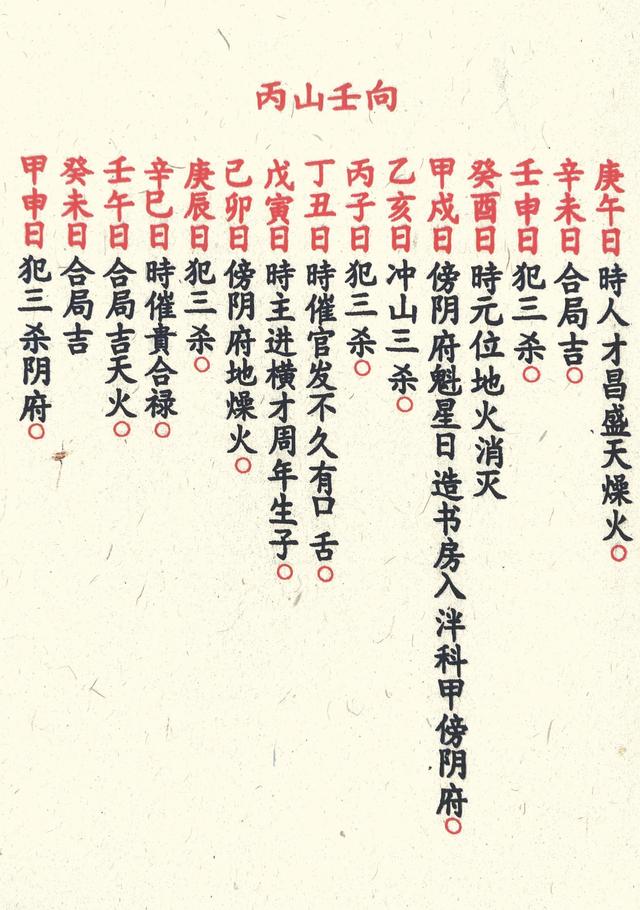 丙山壬向
庚午日時人才昌盛天燥火○
辛未日合局吉○
壬申日犯三杀○
癸酉日時元位地火消灭
甲戍日傍阴府魁星日造书房入泮科甲傍阴府○
乙亥日冲山三杀○
丙子日犯三杀○
丁丑日時催官发不久有口舌○
戊寅日時主进横才周年生子○
己卯日傍阴府地燥火○
庚辰日犯三杀○
辛巳日時催貴合禄○
壬午日合局吉天火○
癸未日合局吉
甲申日犯三杀阴府○